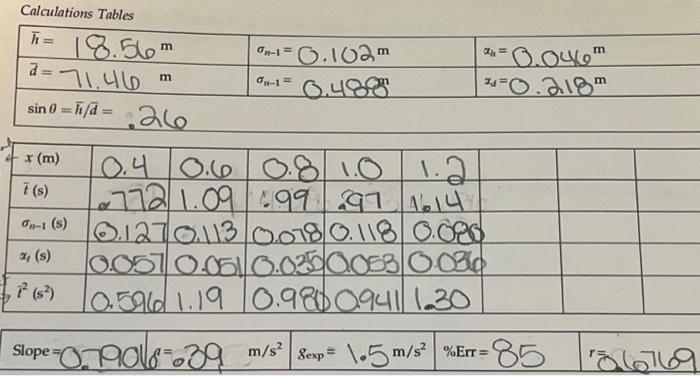 Calculations Tables
h̄ = 18.56 m σn-1 = 0.102 m αh = 0.046 m
d̄ = 71.46 m σn-1 = 0.488 m αd = 0.218 m
sin θ = h̄/d̄ = .26
x (m) 0.4 0.6 0.8 1.0 1.2
t̄ (s) .772 1.09 .99 .97 1.14
σn-1 (s) 0.127 0.113 0.078 0.118 0.080
αt (s) 0.057 0.051 0.035 0.053 0.036
t̄² (s²) 0.596 1.19 0.980 0.941 1.30
Slope = 0.7906 = .39 m/s² gexp = 1.5 m/s² %Err = 85 r = 0.6769